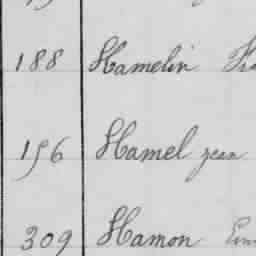 188 Hamelin
156 Hamel jean
309 Hamon